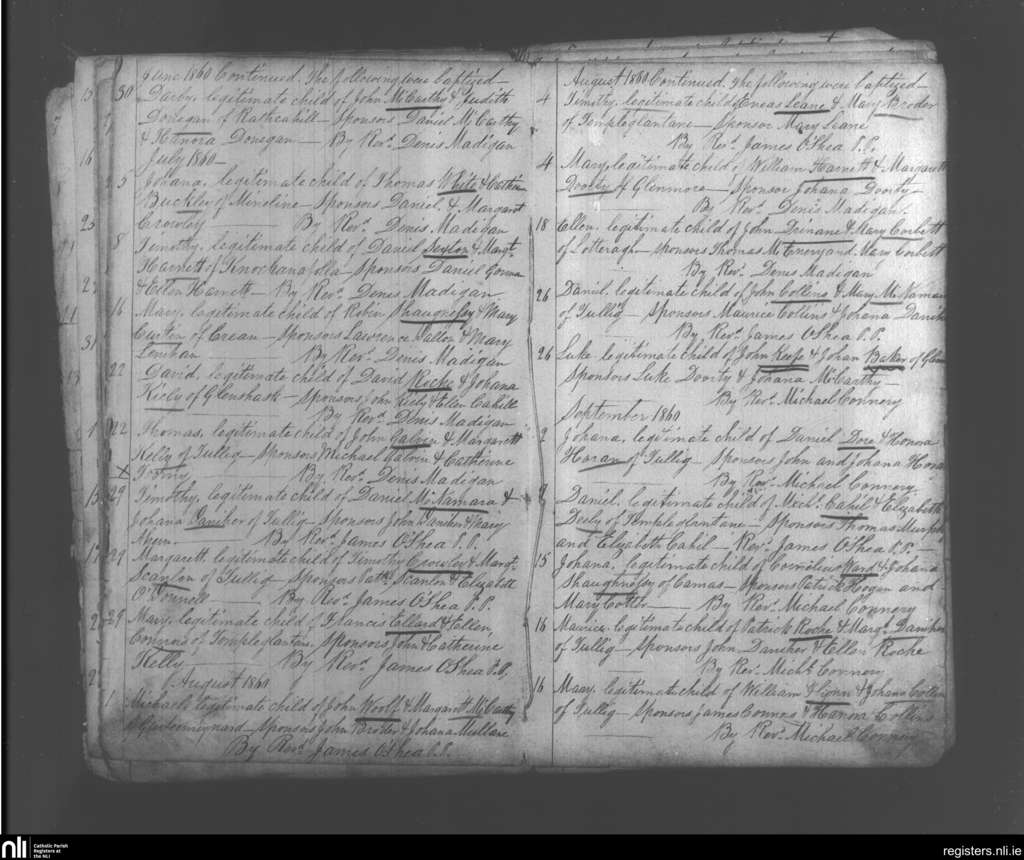 June 1860 Continued. The following were baptized—
30 Darby, legitimate child of John McCarthy & Judith
Donegan of Rathcahill— Sponsors Daniel McCarthy
& Hanora Donegan— By Revd. Denis Madigan
July 1860—
5 Johana, legitimate child of Thomas White &
Buckley of — Sponsors Daniel & Margaret
Crowley — By Revd. Denis Madigan
8 Timothy, legitimate child of Daniel Sexton & Margt.
Harnett of Knocknafolla— Sponsors Daniel
& Ellen Harnett— By Revd. Denis Madigan
16 Mary, legitimate child of Robin Shaughnessy & Mary
Curtin of — Sponsors Lawrence & Mary
Lenihan — By Revd. Denis Madigan
22 David, legitimate child of David Roche & Johana
Kiely of Glenshask— Sponsors John Kiely & Ellen Cahill
By Revd. Denis Madigan
22 Thomas, legitimate child of John Galvin & Margarett
Kelly of Tullig— Sponsors Michael Galvin & Catherine
By Revd. Denis Madigan
29 Timothy, legitimate child of Daniel McNamara &
Johana Danaher of Tullig— Sponsors John Danaher & Mary
By Revd. James O'Shea P.P.
29 Margarett, legitimate child of Timothy Crowley & Margt.
Scanlon of Tullig— Sponsors Patk. Scanlon & Elizabeth
O'Connell— By Revd. James O'Shea P.P.
29 Mary, legitimate child of Francis Ellard & Ellen
Connors of Templeglantan, Sponsors John & Catherine
Kelly, — By Revd. James O'Shea P.P.
August 1860
1 Michael, legitimate child of John Woolf, & Margarett McCarthy
Sponsors John & Johana Mullane
By Revd. James O'Shea P.P.
August 1860 Continued. The following were baptized—
4 Timothy, legitimate child of Leane & Mary Broder
of Templeglantane— Sponsor Mary Leane
By Revd. James O'Shea P.P.
4 Mary, legitimate child of William Harnett & Margarett
Doody of Glenmore— Sponsor Johana Doody—
By Revd. Denis Madigan.
18 Ellen, legitimate child of John Drinane & Mary Corbett
of — Sponsors Thomas McEnery and Mary Corbett
By Revd. Denis Madigan
26 Daniel, legitimate child of John Collins & Mary McNamara
of Tullig— Sponsors Maurice Collins & Johana Danaher
By Revd. James O'Shea P.P.
26 Luke, legitimate child of John Keefe & Johan Baker of
Sponsors Luke Doody & Johana McCarthy—
By Revd. Michael Connery
September 1860
2 Johana, legitimate child of Daniel Dore & Honora
Horan of Tullig— Sponsors John and Johana
By Revd. Michael Connery
Daniel, legitimate child of Michl. Cahil & Elizabeth
of Templeglantane— Sponsors Thomas Murphy
and Elizabeth Cahil— Revd. James O'Shea P.P.—
15 Johana, legitimate child of Cornelius Ward & Johana
Shaughnessy of Camas— Sponsors Patrick Hogan and
Mary — By Revd. Michael Connery
16 Maurice, legitimate child of Patrick Roche & Margt. Danaher
of Tullig— Sponsors John Danaher & Ellen Roche
By Revd. Michl. Connery
16 Mary, legitimate child of William & Johana Collins
of Tullig— Sponsors James Connors & Hanora Collins
By Revd. Michael Connery
nli Catholic Parish
Registers at
the NLI
registers.nli.ie